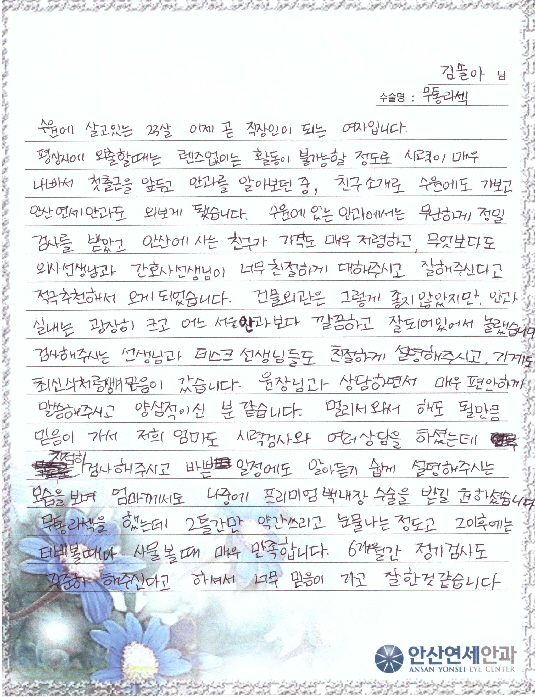 김솔아 님
수술명 : 무통라섹
수원에 살고있는 23살 이제 곧 직장인이 되는 여자입니다.
평상시에 외출할때는 렌즈없이는 활동이 불가능할 정도로 시력이 매우
나빠서 첫출근을 앞두고 안과를 알아보던 중, 친구소개로 수원에도 가보고
안산연세안과도 와보게 됐습니다. 수원에 있는 안과에서는 무난하게 정밀
검사를 받았고 안산에 사는 친구가 가격도 매우 저렴하고, 무엇보다도
의사선생님과 간호사선생님이 너무 친절하게 대해주시고 잘해주신다고
적극추천해서 오게 되었습니다. 건물외관은 그렇게 좋지 않았지만, 안과
실내는 굉장히 크고 어느 서울안과보다 깔끔하고 잘되어있어서 놀랬습니다
검사해주시는 선생님과 데스크 선생님들도 친절하게 설명해주시고, 기계도
최신식처럼 믿음이 갔습니다. 원장님과 상담하면서 매우 편안하게
말씀해주시고 양심적이신 분 같습니다. 멀리서와서 해도 될만큼
믿음이 가서 저희 엄마도 시력검사와 여러상담을 하셨는데
친절히 검사해주시고 바쁜 일정에도 알아듣기 쉽게 설명해주시는
모습을 보며 엄마께서도 나중에 프리미엄 백내장 수술을 받길 원하셨습니다
무통라섹을 했는데 2틀간만 약간쓰리고 눈물나는 정도고 그이후에는
티비볼때나 사물볼때 매우 만족합니다. 6개월간 정기검사도
꾸준히 해주신다고 하셔서 너무 믿음이 가고 잘한것같습니다
안산연세안과
ANSAN YONSEI EYE CENTER